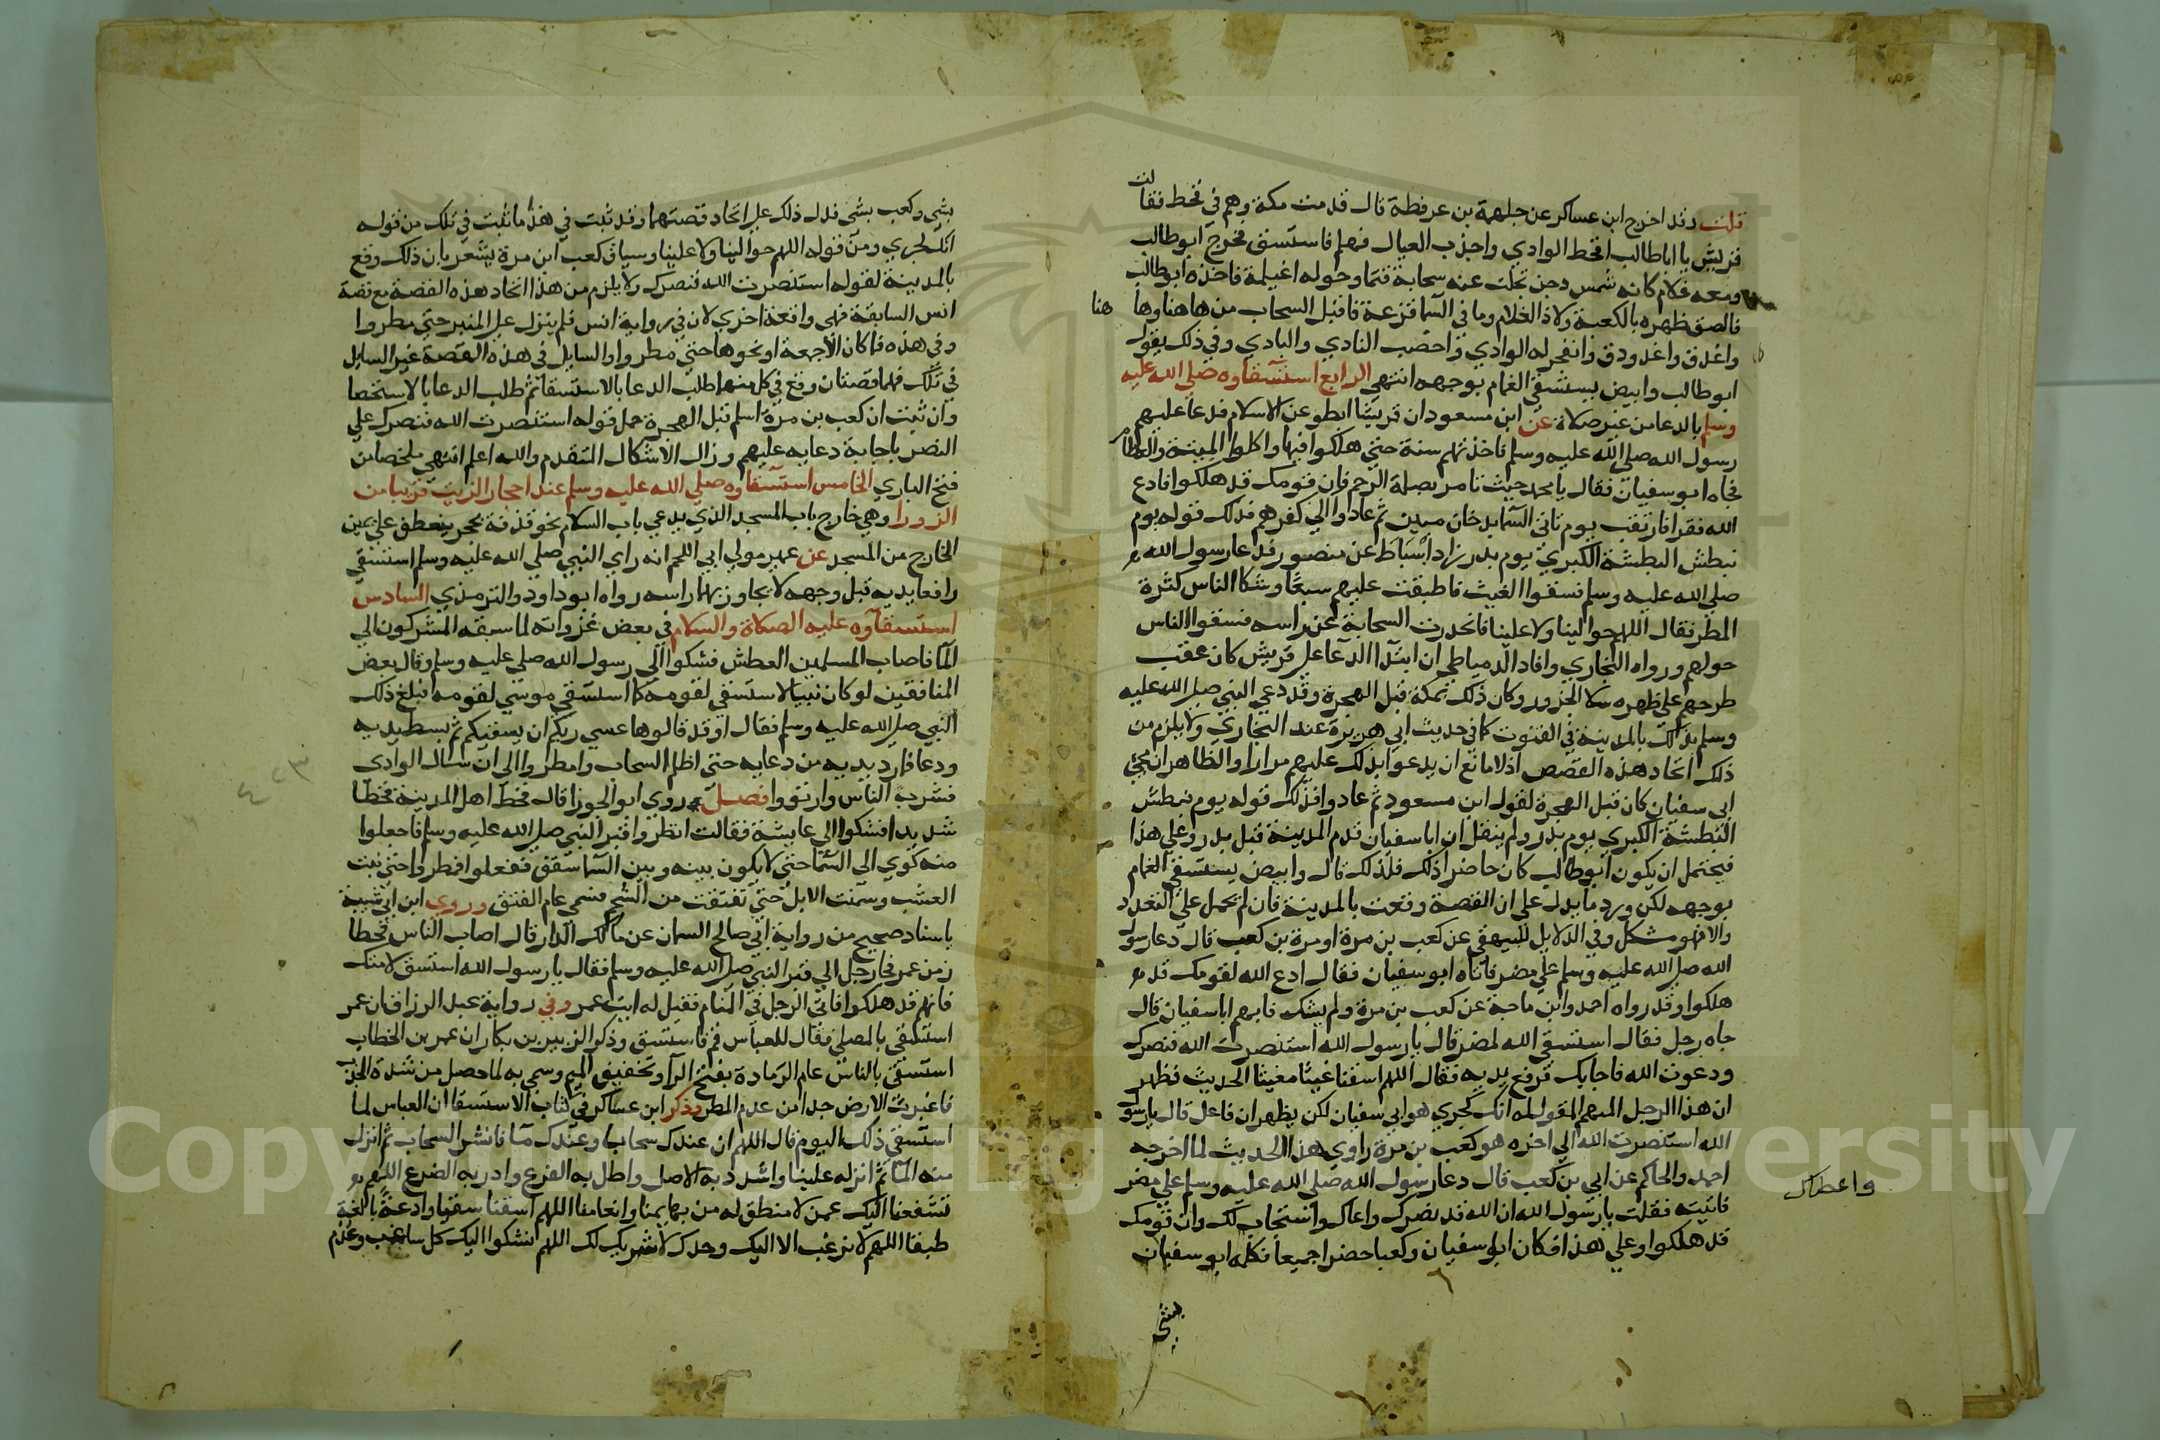 قلت وقد اخرج ابن عساكر عن جلهمة بن عرفطة قال قدمت مكة وهم في قحط فقالت
قريش يا ابا طالب اقحط الوادي واجذب العيال فهلم فاستسق فخرج ابو طالب
ومعه غلام كانه شمس دجن تجلت عنه سحابة قتما وحوله اغيلمة فاخذه ابو طالب
فالصق ظهره بالكعبة ولاذ الغلام وما في السما قزعة فاقبل السحاب من هاهنا وها هنا
واغدق واغدودق وانفجر له الوادي واخصب النادي والبادي وفي ذلك يقول
ابو طالب وابيض يستسقي الغمام بوجهه انتهي الرابع استسقاوه صلي الله عليه
وسلم بالدعا من غير صلاة عن ابن مسعود ان قريشا ابطو عن الاسلام فدعا عليهم
رسول الله صلي الله عليه وسلم فاخذتهم سنة حتي هلكوا فيها واكلوا الميتة والعظام
فجاه ابو سفيان فقال يا محمد جيث تامر بصلة الرحم فان قومك قد هلكوا فادع
الله فقرا فارتقب يوم تاتي السما بدخان مبين ثم عادوا الي كفرهم فذلك قوله يوم
نبطش البطشة الكبري يوم بدر زاد اسباط عن منصور فدعا رسول الله
صلي الله عليه وسلم فسقوا الغيث فاطبقت عليهم سبعا وشكا الناس كثرة
المطر فقال اللهم حوالينا ولا علينا فانحدرت السحابة عن راسه فسقوا الناس
حولهم ورواه البخاري وافاد الدمياطي ان ابتدا الدعا علي قريش كان عقب
طرحهم علي ظهره سلا الجزور وكان ذلك بمكة قبل الهجرة وقد دعي النبي صلي الله عليه
وسلم بذلك بالمدينة في القنوت كما في حديث ابي هريرة عند البخاري ولا يلزم من
ذلك اتحاد هذه القصص اذ لا مانع ان يدعو بذلك عليهم مرارا والظاهر ان مجي
ابي سفيان كان قبل الهجرة لقول ابن مسعود ثم عادوا فذلك قوله يوم نبطش
البطشة الكبري يوم بدر ولم ينقل ان ابا سفيان قدم المدينة قبل بدر وعلي هذا
فيحتمل ان يكون ابو طالب كان حاضرا ذلك فلذلك قال وابيض يستسقي الغمام
بوجهه لكن ورد ما يدل علي ان القصة وقعت بالمدينة فان لم يحمل علي التعدد
والا فهو مشكل وفي الدلايل للبيهقي عن كعب بن مرة او مرة بن كعب قال دعا رسول
الله صلي الله عليه وسلم علي مضر فاتاه ابو سفيان فقال ادع الله لقومك قد
هلكوا وقد رواه احمد وابن ماجة عن كعب بن مرة ولم يشك فابهم ابا سفيان قال
جاه رجل فقال استسقي الله لمضر قال يا رسول الله استنصرت الله فنصرك
ودعوت الله فاجابك فرفع يديه فقال اللهم اسقنا غيثا مغيثا الحديث فظهر
ان هذا الرجل المبهم المقول له انك لجري هو ابي سفيان لكن يظهر ان فاعل قال يا رسول
الله استنصرت الله الي اخره هو كعب بن مرة راوي هذا الحديث لما اخرجه
احمد والحاكم عن ابي بن كعب قال دعا رسول الله صلي الله عليه وسلم علي مضر
فاتيته فقلت يا رسول الله ان الله قد نصرك واعاك واستجاب لك وان قومك
واعطاك
قد هلكوا وعلي هذا فكان ابو سفيان وكعبا حضرا جميعا فكلمه ابو سفيان
بشي
بشي وكعب بشي فدل ذلك علي اتحاد قصتهما وقد ثبت في هذه ما ثبت في تلك من قوله
انك لجري ومن قوله اللهم حوالينا ولا علينا وسياق كعب ابن مرة يشعر بان ذلك وقع
بالمدينة لقوله استنصرت الله فنصرك ولا يلزم من هذا اتحاد هذه القصة مع قصة
انس السابقة فهي واقعة اخري لان في رواية انس فلم ينزل علي المنبر حتي مطروا
وفي هذه فما كان الا جمعة او نحوها حتي مطروا والسايل في هذه القصة غير السايل
في تلك فهما قصتان وقع في كل منهما طلب الدعا بالاستسقا ثم طلب الدعا بالاستصحا
وان ثبت ان كعب بن مرة اسلم قبل الهجرة حمل قوله استنصرت الله فنصرك علي
النصر باجابة دعايه عليهم وزال الاشكال المتقدم والله اعلم انتهي ملخصا من
فتح الباري الخامس استسقاوه صلي الله عليه وسلم عند احجار الزيت قريبا من
الزورا وهي خارج باب المسجد الذي يدعي باب السلام نحو قذفة بحجر ينعطق علي يمين
الخارج من المسجد عن عمير مولي ابي اللحم انه راي النبي صلي الله عليه وسلم استسقي
رافعا يديه قبل وجهه لا يجاوز بهما راسه رواه ابو داود والترمذي السادس
استسقاوه عليه الصلاة والسلام في بعض غزواته لما سبقه المشركون الي
الما فاصاب المسلمين العطش فشكوا الي رسول الله صلي عليه وسلم وقال بعض
المنافقين لو كان نبيا لاستسقي لقومه كما استسقي موسي لقومه فبلغ ذلك
النبي صلي الله عليه وسلم فقال اوقد قالوها عسي ربكم ان يسقيكم ثم بسط يديه
ودعا فما رد يديه من دعايه حتي اظلم السحاب وامطروا الي ان سال الوادي
فشرب الناس وارتووا فصل روي ابو الجوزا قال قحط اهل المدينة قحطا
شديدا فشكوا الي عايشة فقالت انظروا قبر النبي صلي الله عليه وسلم فاجعلوا
منه كوي الي السما حتي لا يكون بينه وبين السما سقق ففعلوا فمطروا حتي نبت
العشب وسمنت الابل حتي تفتقت من الشحم فسمي عام الفتق وروي ابن ابي شيبة
باسناد صحيح من رواية ابي صالح السمان عن مالك الدار قال اصاب الناس قحطا
زمن عمر فجا رجل الي قبر النبي صلي الله عليه وسلم فقال يا رسول الله استسق لامتك
فانهم قد هلكوا فاتي الرجل في المنام فقيل له ايت عمر وفي رواية عبد الرزاق ان عمر
استسقي بالمصلي فقال للعباس قم فاستسق وذكر الزبير بن بكار ان عمر بن الخطاب
استسقي بالناس عام الرمادة بفتح الرا وتخفيق الميم وسمي به لما حصل من شدة الجدب
فاغبرت الارض جدا من عدم المطر وذكر ابن عساكر في كتاب الاستسقا ان العباس لما
استسقي ذلك اليوم قال اللهم ان عندك سحابا وعندك ما فانشر السحاب ثم انزل
منه الما ثم انزله علينا واشدد به الاصل واطل به الفرع وادر به الضرع اللهم
تشفعنا اليك عمن لا منطق له من بهايمنا وانعامنا اللهم اسقنا سقيا وادعة بالغة
طبقا اللهم لا نرغب الا اليك وحدك لا شريك لك اللهم نشكوا اليك كل ساغب وعدم